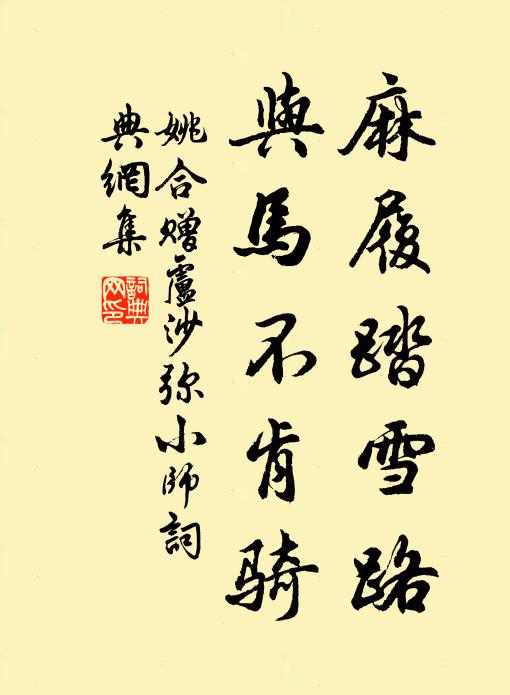 麻履踏雪路
與馬不肯騎
姚合贈盧沙弥小師詞
典網集
詞典网印